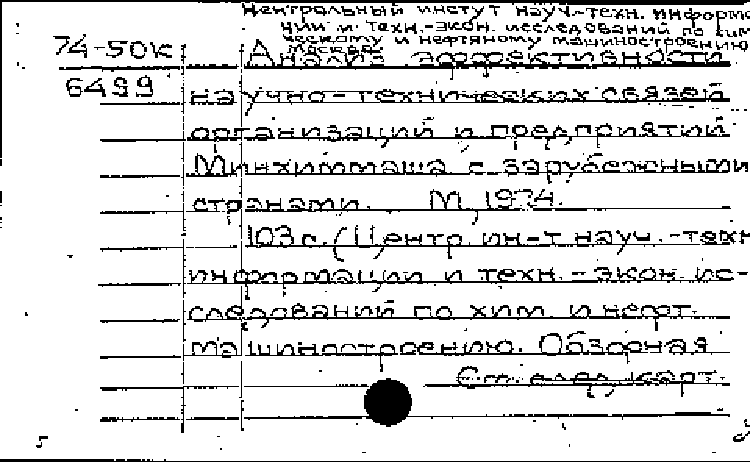 Центральный инстут науч.-техн. информа
ции и техн.-экон. исследований по хим
ческому и нефтяному машиностроению
Москва
74-50к Анализ эффективности
6499 научно-технических связей
организаций и предприятий
Минхиммаша с зарубежными
странами. М, 1974.
103 с. (Центр. ин-т науч.-техн
информации и техн.-экон. ис-
следований по хим. и нефт.
машиностроению. Обзорная
См. след. карт.
5